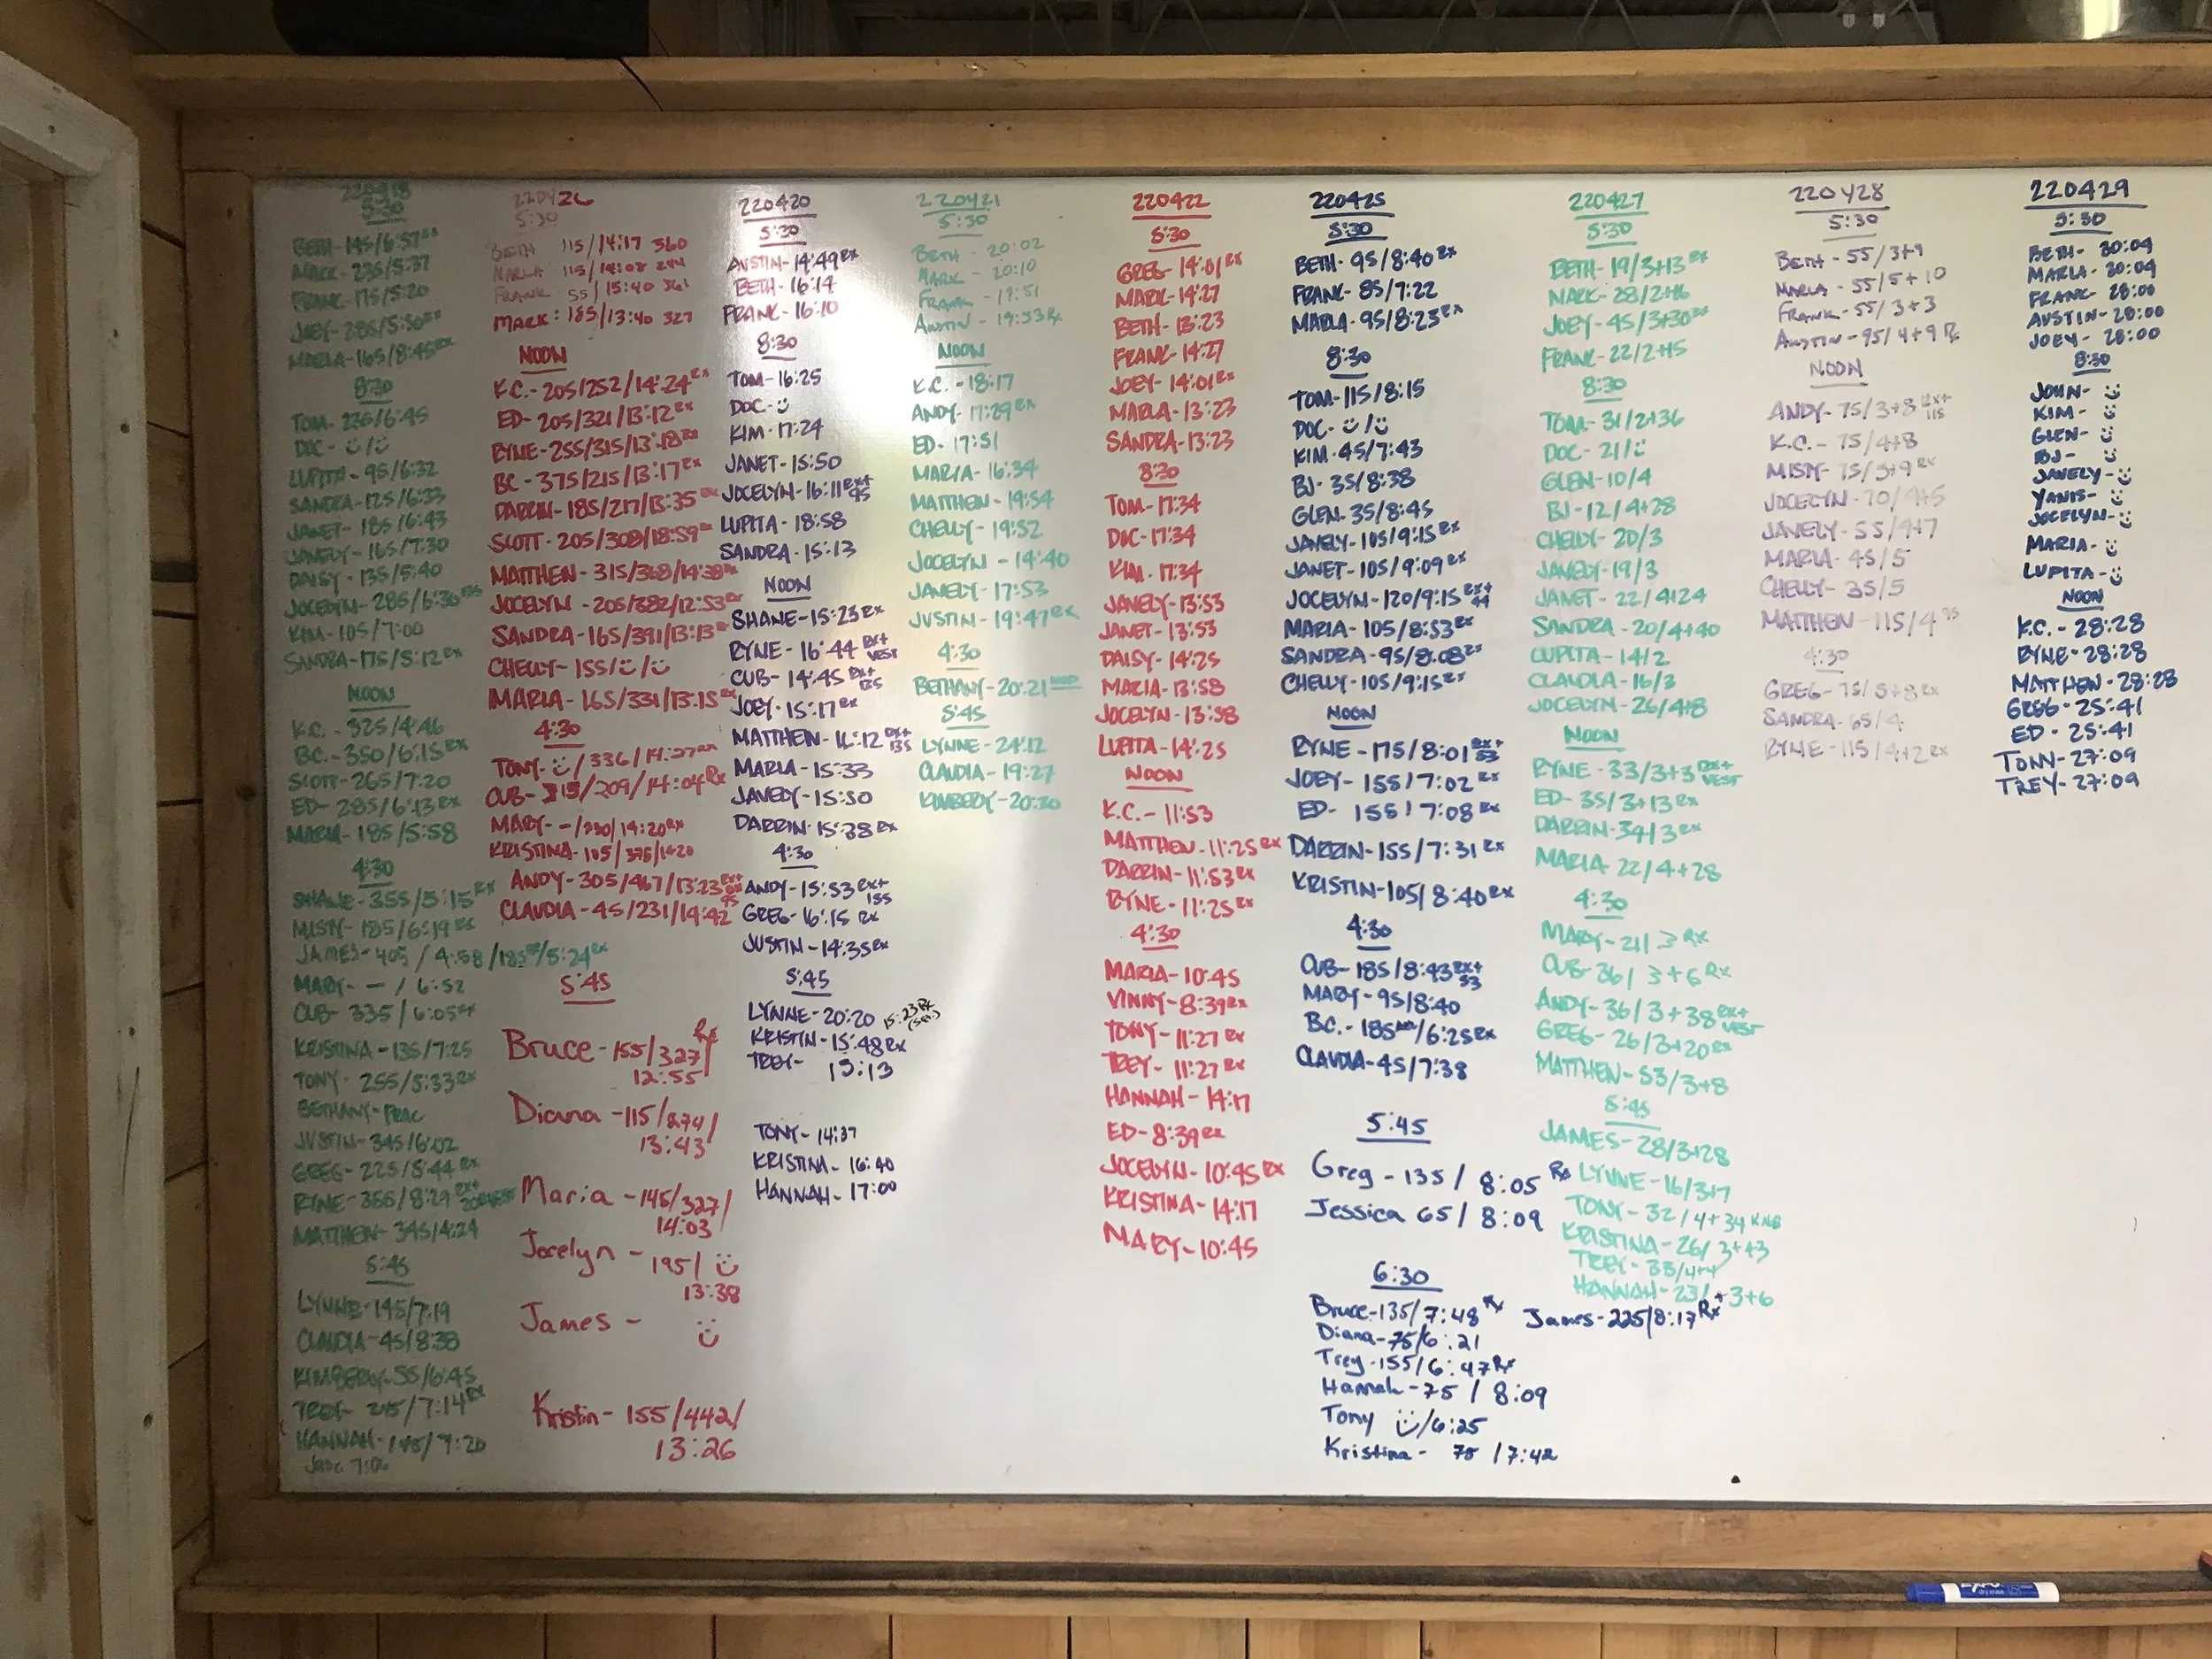 220418
5:30
BETH-145/6:57
MARK-235/5:37
FRANK-175/5:20
JOEY-285/5:50RX
MARLA-165/8:45RX
8:30
TOM-235/6:45
DOC-
LUPITA-95/6:32
SANDRA-125/6:33
JANET-185/6:43
JAVELY-165/7:30
DAISY-135/5:40
JOCELYN-285/6:30
KIM-105/7:00
SANDRA-175/5:12RX
NOON
K.C.-325/4:46
BC-350/6:15RX
SCOTT-265/7:20
ED-285/6:13RX
MARIA-185/5:58
4:30
SHANE-355/5:15RX
MISTY-185/6:19RX
JAMES-405/4:58/185/5:24RX
MARY- — / 6:52
CUB-335/6:05RX
KRISTINA-135/7:25
TONY-255/5:33RX
BETHANY-PRAC
JUSTIN-345/6:02
GREG-225/5:44RX
RYNE-355/8:29 RX+
MATTHEW-345/4:24
5:45
LYNNE-145/7:19
CLAUDIA-45/8:38
KIMBERLY-55/6:45
TREY-245/7:14RX
HANNAH-145/7:20
220426
5:30
BETH 115/14:17 360
MARLA 115/14:08 294
FRANK 55/15:40 361
MARK: 185/13:40 327
NOON
K.C.-205/252/14:24RX
ED-205/321/13:12RX
RYNE-255/315/13:18RX
BC-375/215/13:17RX
DARRIN-185/217/13:35RX
SCOTT-205/308/18:59RX
MATTHEW-315/368/14:38RX
JOCELYN-205/382/12:53RX
SANDRA-165/391/13:13RX
CHELLY-155/
MARIA-165/331/13:15RX
4:30
TONY- /336/14:27RX
CUB-315/209/14:04RX
MARY- —/230/14:20RX
KRISTINA-105/375/14:20
ANDY-305/467/13:23RX+
CLAUDIA-45/231/14:42
5:45
Bruce-155/327/ Rx
12:55
Diana-115/274/
13:43
Maria-145/327/
14:03
Jocelyn-195/
13:38
James-
Kristin-155/442/
13:26
220420
5:30
AUSTIN-14:49RX
BETH-16:14
FRANK-16:10
8:30
TOM-16:25
DOC-
KIM-17:24
JANET-15:50
JOCELYN-16:11RX+ 95
LUPITA-18:58
SANDRA-15:13
NOON
SHANE-15:23RX
RYNE-16:44 RX+ VEST
CUB-14:45 RX+ 135
JOEY-15:17RX
MATTHEW-16:12 RX+ 135
MARIA-15:33
JAVELY-15:50
DARRIN-15:38RX
4:30
ANDY-15:53RX+ 155
GREG-16:15 RX
JUSTIN-14:35RX
5:45
LYNNE-20:20
KRISTIN-15:48RX
TREY- 15:13
TONY-14:37
KRISTINA-16:40
HANNAH-17:00
220421
5:30
BETH-20:02
MARK-20:10
FRANK-19:51
AUSTIN-19:53RX
NOON
K.C.-18:17
ANDY-17:29RX
ED-17:51
MARIA-16:34
MATTHEW-19:54
CHELLY-19:52
JOCELYN-14:40
JAVELY-17:53
JUSTIN-19:47RX
4:30
BETHANY-20:21
5:45
LYNNE-24:12
CLAUDIA-19:27
KIMBERLY-20:30
220422
5:30
GREG-14:01RX
MARK-14:27
BETH-13:23
FRANK-14:27
JOEY-14:01RX
MARLA-13:23
SANDRA-13:23
8:30
TOM-17:34
DOC-17:34
KIM-17:34
JAVELY-13:53
JANET-13:53
DAISY-14:25
MARIA-13:58
JOCELYN-13:58
LUPITA-14:25
NOON
K.C.-11:53
MATTHEW-11:25RX
DARRIN-11:53RX
RYNE-11:25RX
4:30
MARIA-10:45
VINNY-8:39RX
TONY-11:27RX
TREY-11:27RX
HANNAH-14:17
ED-8:39RX
JOCELYN-10:45RX
KRISTINA-14:17
MARY-10:45
220425
5:30
BETH-95/8:40RX
FRANK-85/7:22
MARLA-95/8:23RX
8:30
TOM-115/8:15
DOC-
KIM-45/7:43
BJ-35/8:38
GLEN-35/8:45
JAVELY-105/9:15RX
JANET-105/9:09RX
JOCELYN-120/9:15RX+ 44
MARIA-105/8:53RX
SANDRA-95/8:08RX
CHELLY-105/9:15RX
NOON
RYNE-175/8:01RX+ 53
JOEY-155/7:02RX
ED-155/7:08RX
DARRIN-155/7:31RX
KRISTIN-105/8:40RX
4:30
CUB-185/8:43RX+ 53
MARY-95/8:40
BC.-185/6:25RX
CLAUDIA-45/7:38
5:45
Greg-135/8:05 Rx
Jessica 65/8:09
6:30
Bruce-135/7:48 Rx
James-225/8:17Rx
Diana-75/6:21
Trey-155/6:47Rx
Hannah-75/8:09
Tony /6:25
Kristina-75/7:42
220427
5:30
BETH-19/3+13RX
MARK-28/2+16
JOEY-45/3+30RX
FRANK-22/2+15
8:30
TOM-31/2+36
DOC-21/
GLEN-10/4
BJ-12/4+28
CHELLY-20/3
JAVELY-19/3
JANET-22/4+24
SANDRA-20/4+40
LUPITA-14/2
CLAUDIA-16/3
JOCELYN-26/4+8
NOON
RYNE-33/3+3 RX+ VEST
ED-35/3+13RX
DARRIN-34/3RX
MARIA 22/4+28
4:30
MARY-21/3RX
CUB-36/3+6RX
ANDY-36/3+38RX+ VEST
GREG-26/3+20RX
MATTHEW-53/3+8
5:45
JAMES-28/3+28
LYNNE-16/3+7
TONY-32/4+34
KRISTINA-26/3+43
TREY-33/4+4
HANNAH-23/+3+6
220428
5:30
BETH-55/3+9
MARLA-55/5+10
FRANK-55/3+3
AUSTIN-95/4+9 Rx
NOON
ANDY-75/3+8RX+ 115
K.C.-75/4+8
MISTY-75/3+9RX
JOCELYN-70/4+5
JAVELY-55/4+7
MARIA-45/5
CHELLY-35/5
MATTHEW-115/4
4:30
GREG-75/5+8RX
SANDRA-65/4
RYNE-115/4+2RX
220429
5:30
BETH-30:04
MARLA-30:04
FRANK-28:00
AUSTIN-28:00
JOEY-28:00
8:30
JOHN-
KIM-
GLEN-
BJ-
JAVELY-
YANIS-
JOCELYN-
MARIA-
LUPITA-
NOON
K.C.-28:28
RYNE-28:28
MATTHEW-28:28
GREG-25:41
ED-25:41
TONY-27:09
TREY-27:09